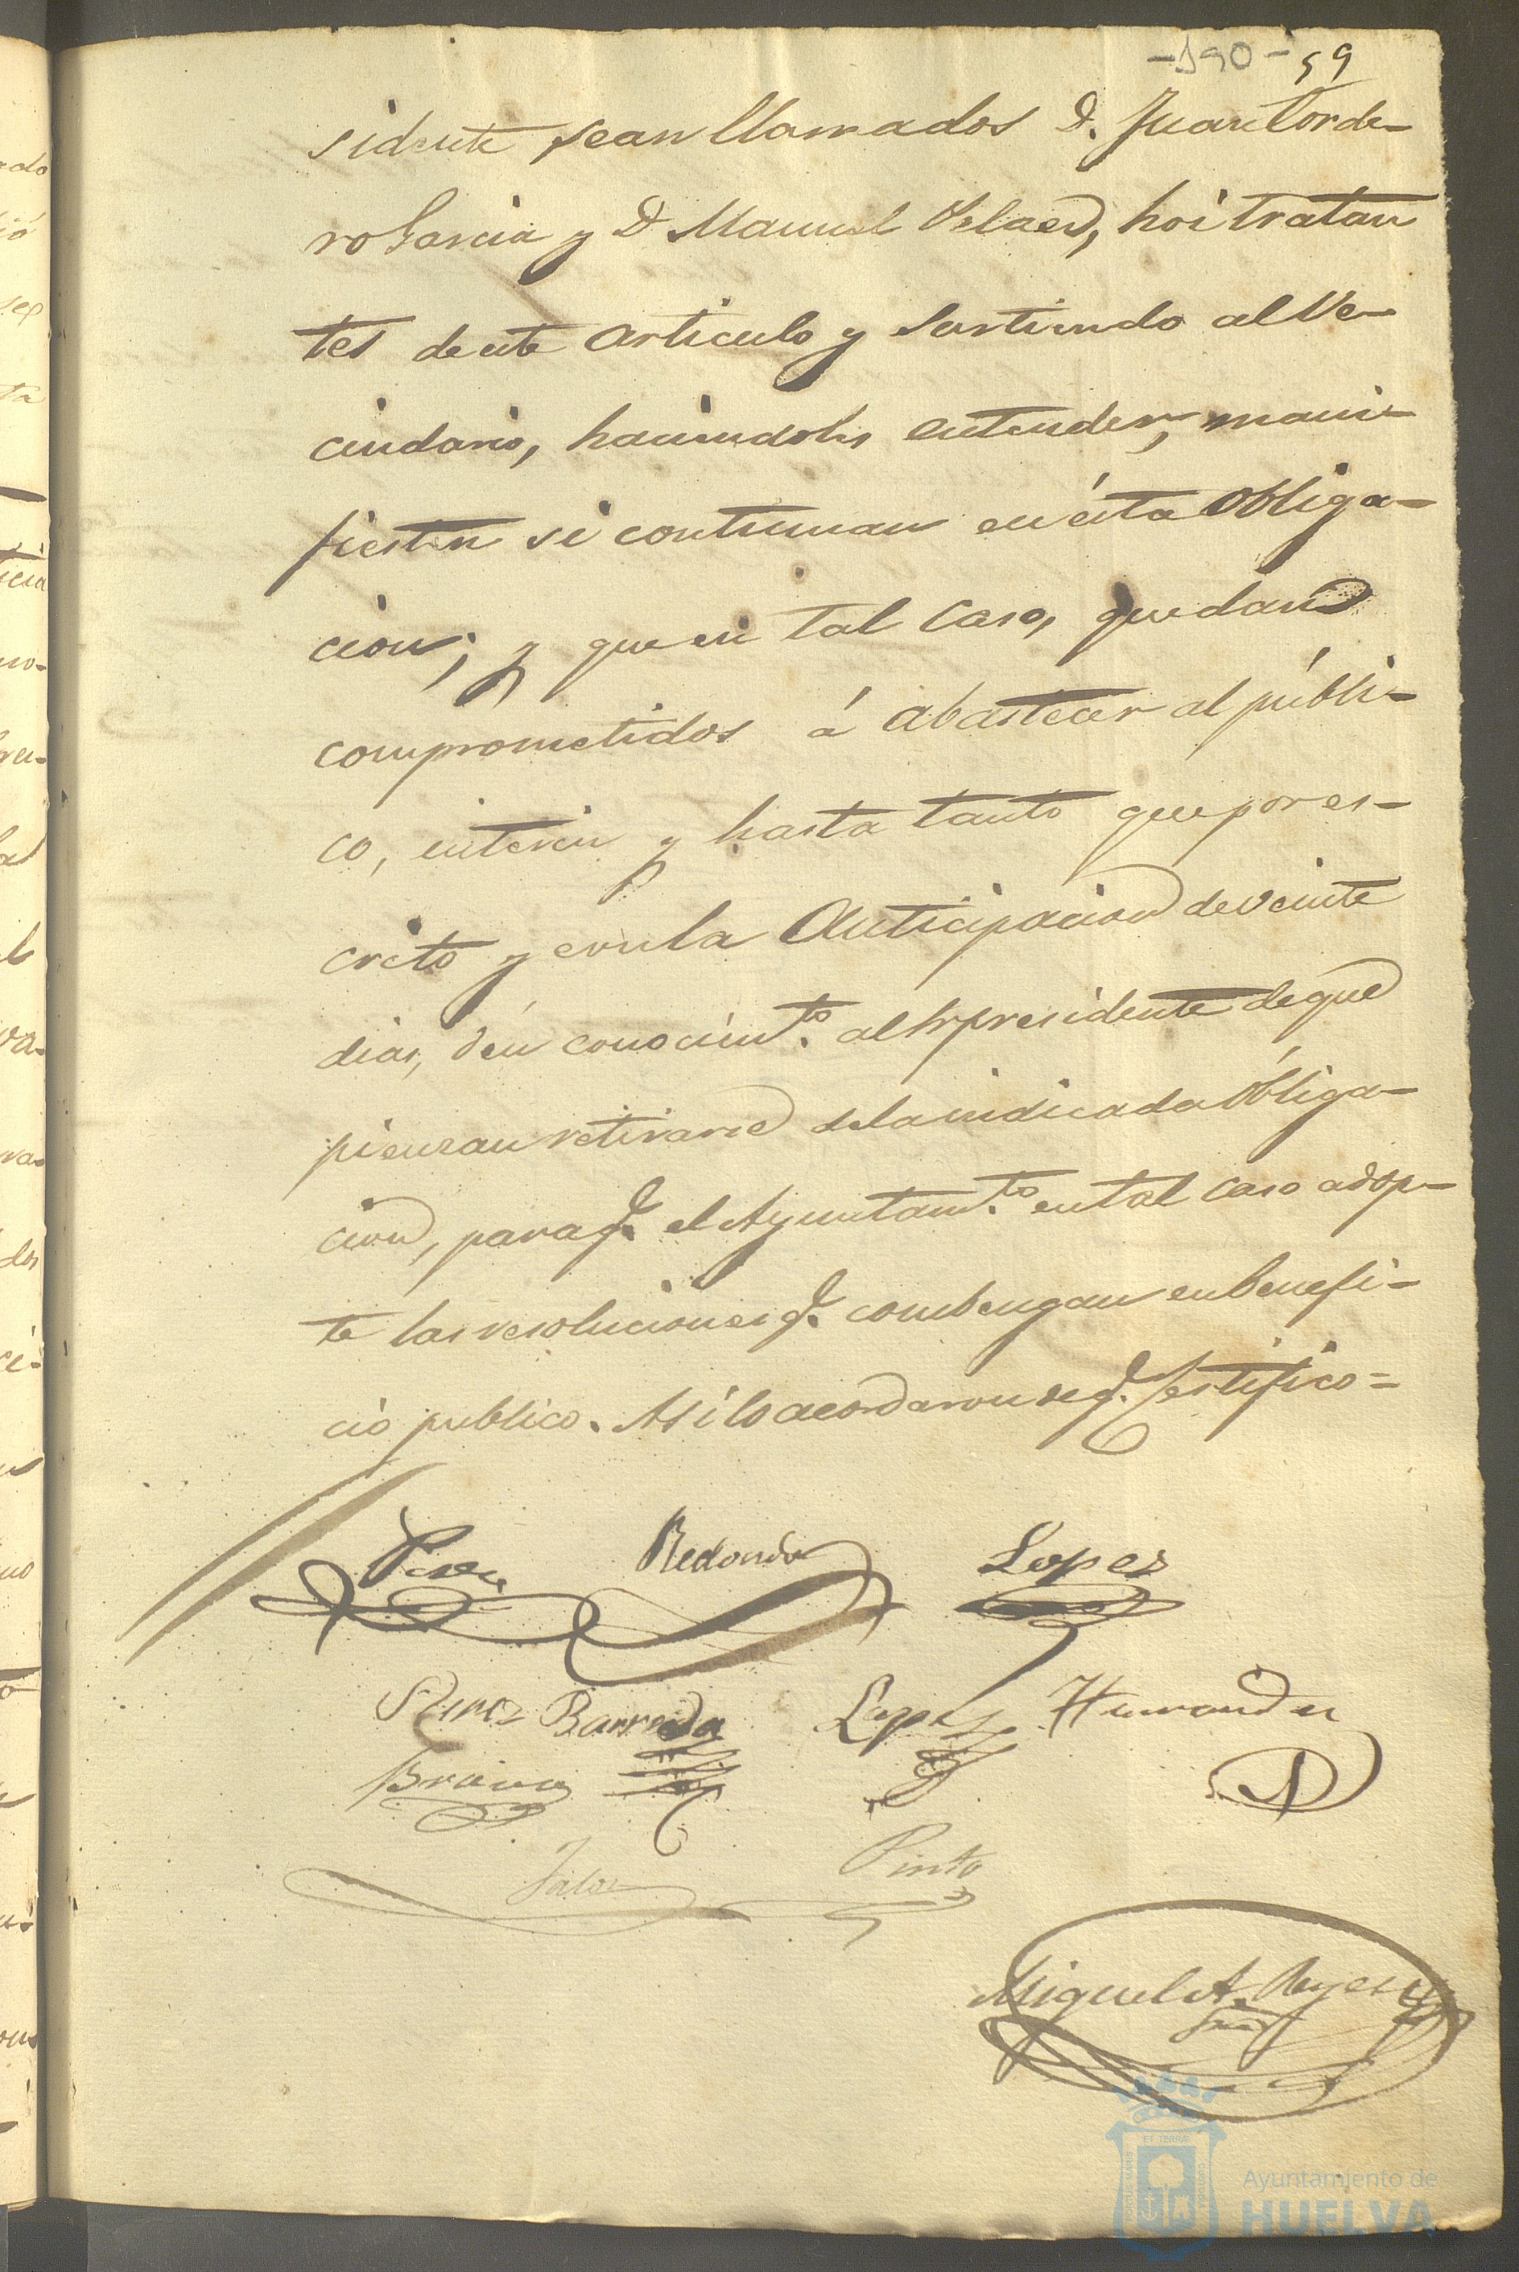 -190- 59
sidente sean llamados D. Juan Corde-
ro Garcia y D Manuel Velaed, hoi tratan
tes de este articulo y surtiendo al Ve-
cindario, haciendoles entender, mani-
fiesten si continuan en ésta obliga-
cion; y que en tal caso, quedan
comprometidos á abastecer al públi-
co, interin y hasta tanto que por es-
crito y con la Anticipacion de veinte
dias, dén conocim.to al Sr presidente de que
piensan retirarse de la indicada obliga-
cion, para q.e el Ayuntam.to en tal caso adop-
te las resoluciones q.e combengan en benefi-
cio publico. Asi lo acordaron de q.e Certifico=
Redondo Lopez
Perez Barreda Lopez Hernandez
Bravo
Pinto
Miguel A. Reyes
Srio
Ayuntamiento de
HUELVA